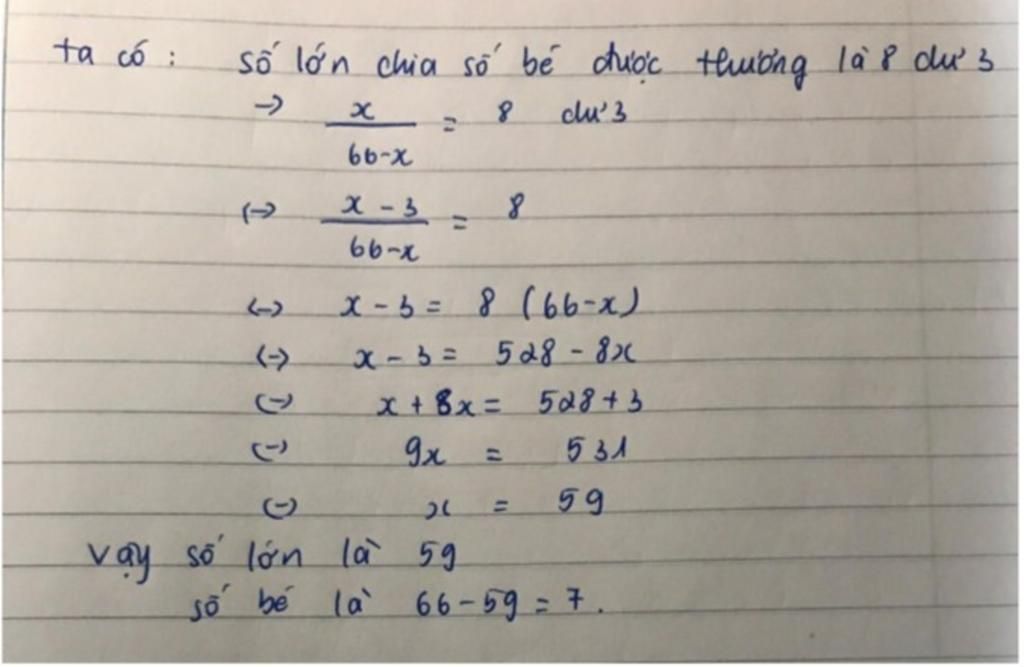 ta có : số lớn chia số bé được thương là 8 dư 3
→ x / 66-x = 8 dư 3
(→) x - 3 / 66-x = 8
(→) x - 3 = 8 (66-x)
(→) x - 3 = 528 - 8x
(→) x + 8x = 528 + 3
(→) 9x = 531
(→) x = 59
vậy số lớn là 59
số bé là 66-59 = 7.